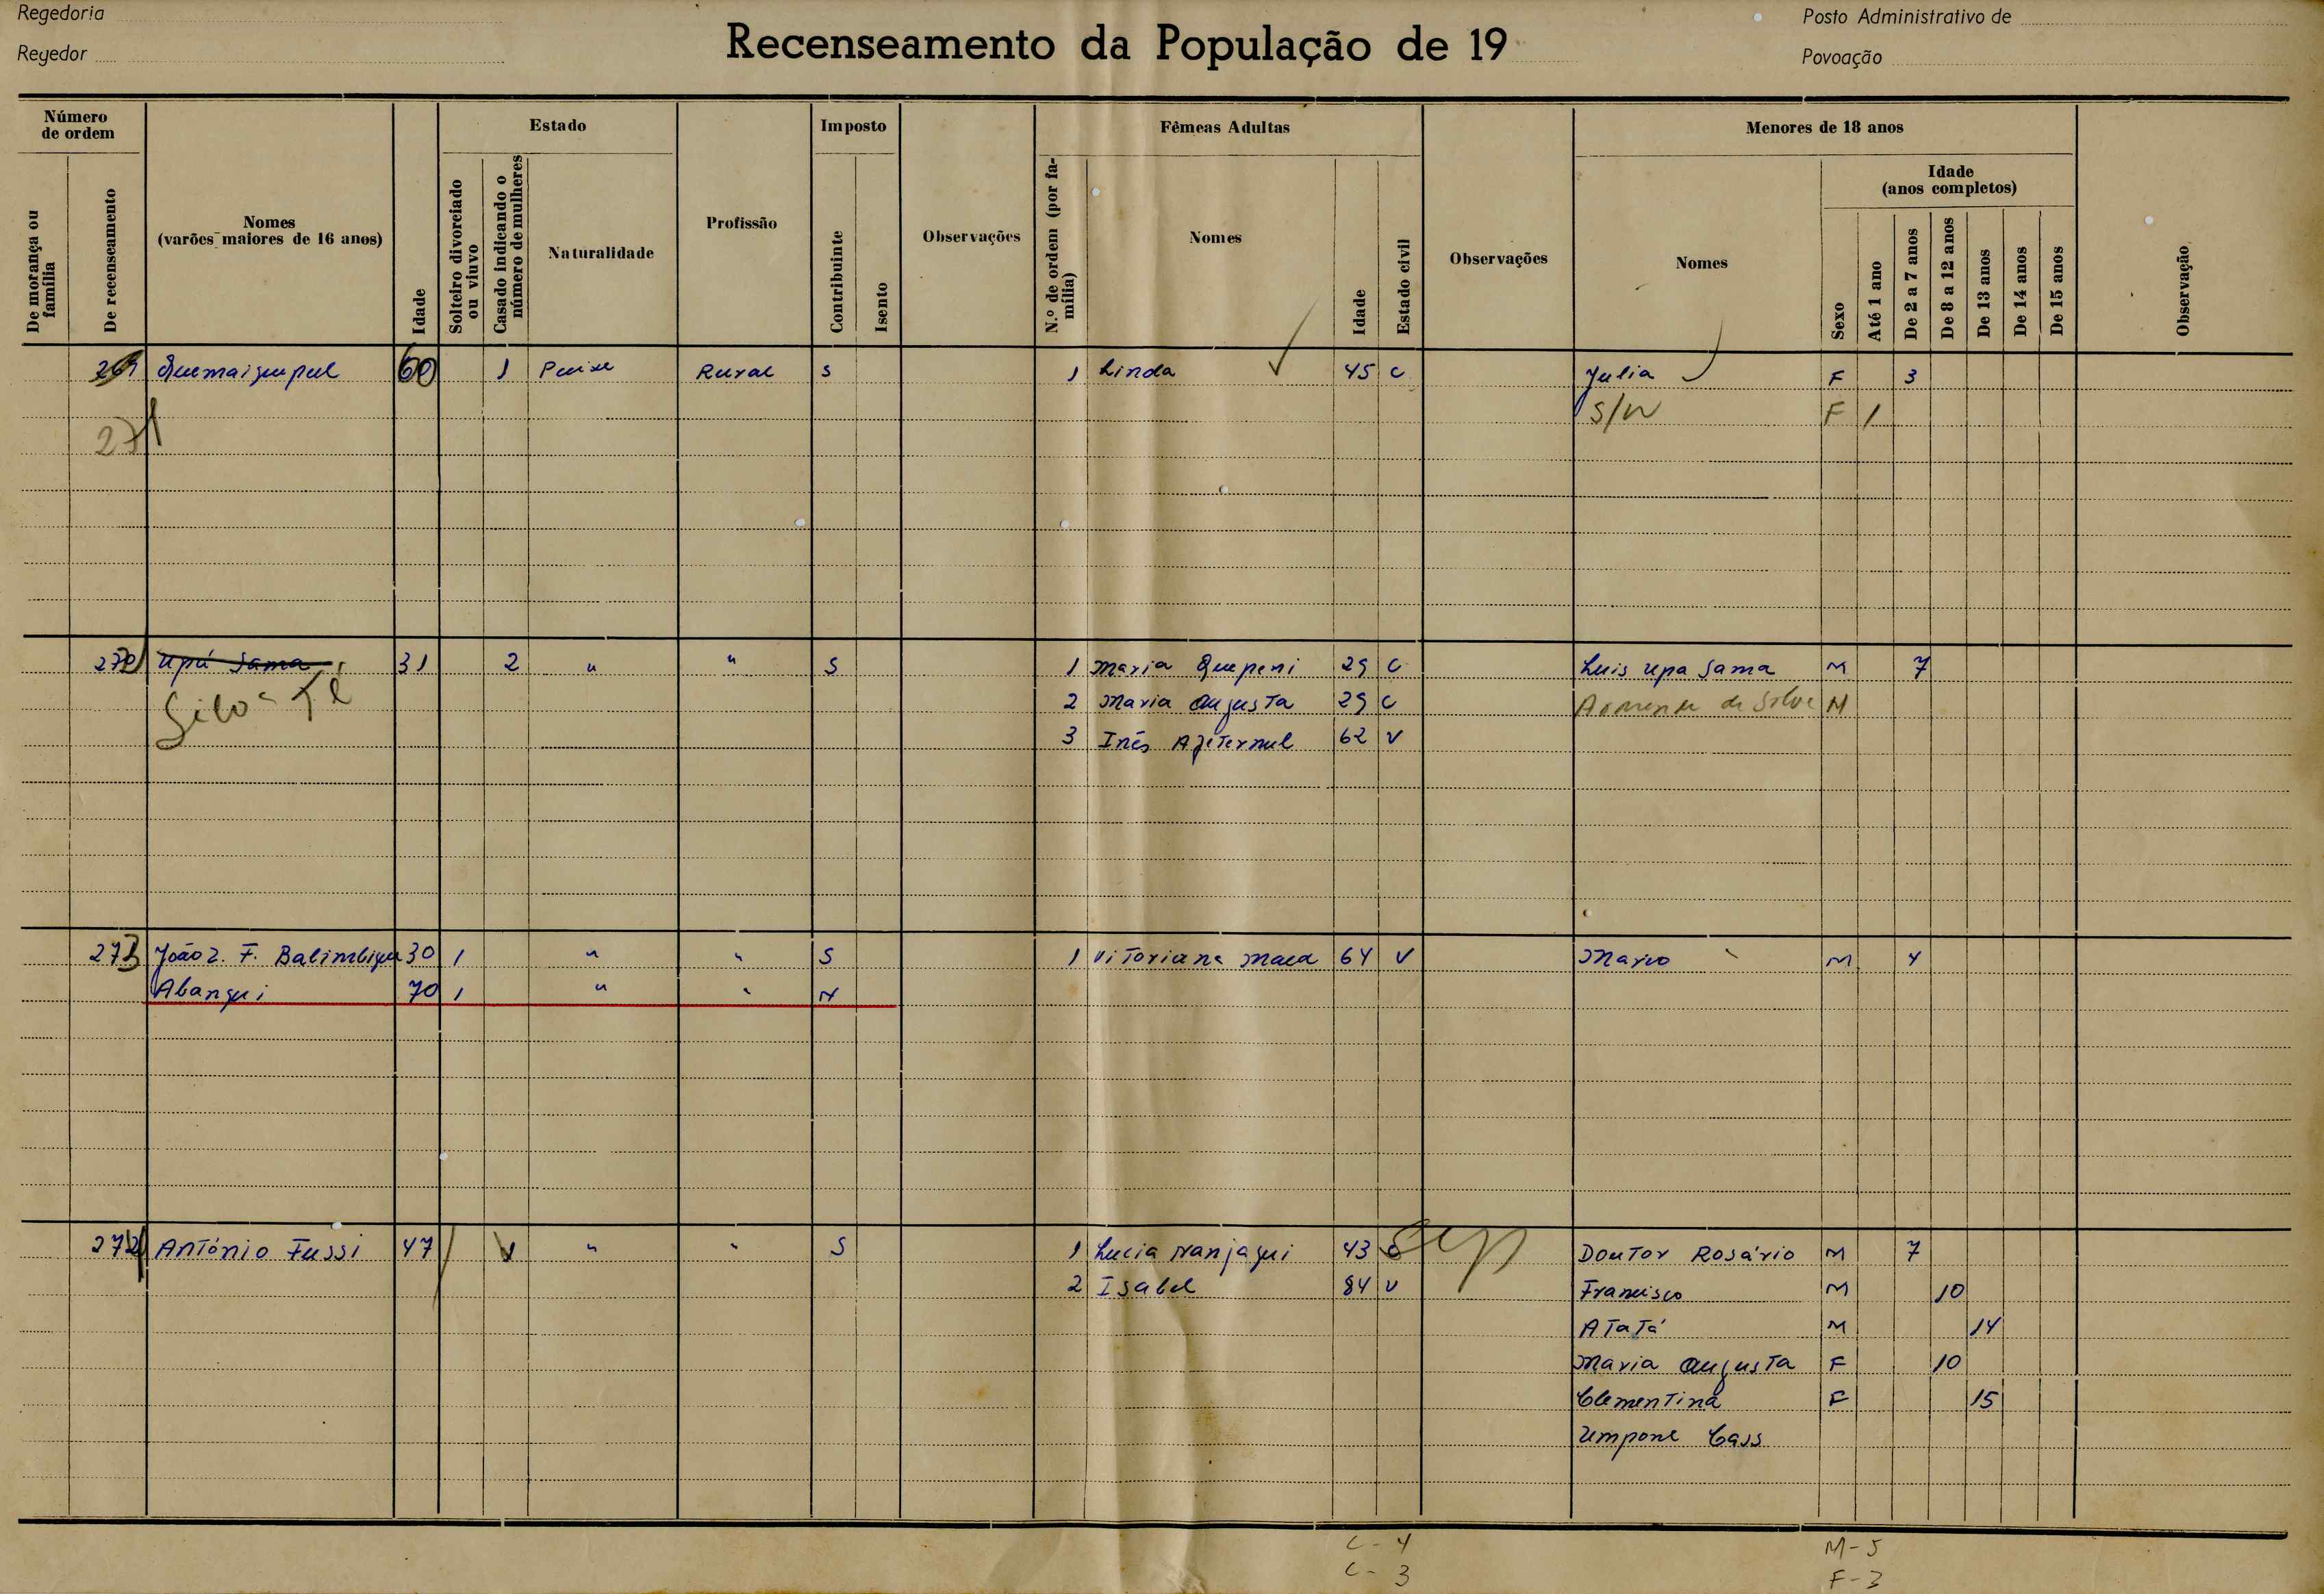 Regedoria
Regedor
Recenseamento da População de 19
Posto Administrativo de
Povoação
Número de ordem
De morança ou família
De recenseamento
Nomes
(varões maiores de 16 anos)
Idade
Estado
Solteiro divorciado ou viuvo
Casado indicando o número de mulheres
Naturalidade
Profissão
Imposto
Contribuinte
Isento
Observações
Fêmeas Adultas
N.º de ordem (por família)
Nomes
Idade
Estado civil
Observações
Menores de 18 anos
Nomes
Sexo
Idade
(anos completos)
Até 1 ano
De 2 a 7 anos
De 8 a 12 anos
De 13 anos
De 14 anos
De 15 anos
Observação
60 1 Rural S 1 Linda 45 C Julia F 3
271 S/N F 1
Upá Sama 31 2 " " S 1 Maria Quepeni 29 C Luis Upa Sama M 7
2 Maria Augusta 29 C M
3 Inês 62 V
273 João Z. F. 30 1 " " S 1 Vitoriana 64 V Mario M 4
Abangui 70 1 " " N
António Fussi 47 " " S 1 Lucia Nanjagui 43 Doutor Rosário M 7
2 Isabel 84 V Francisco M 10
Atatá M 14
Maria Augusta F 10
Clementina F 15
Umpone Cass
C - 4 M - 5
C - 3 F - 3